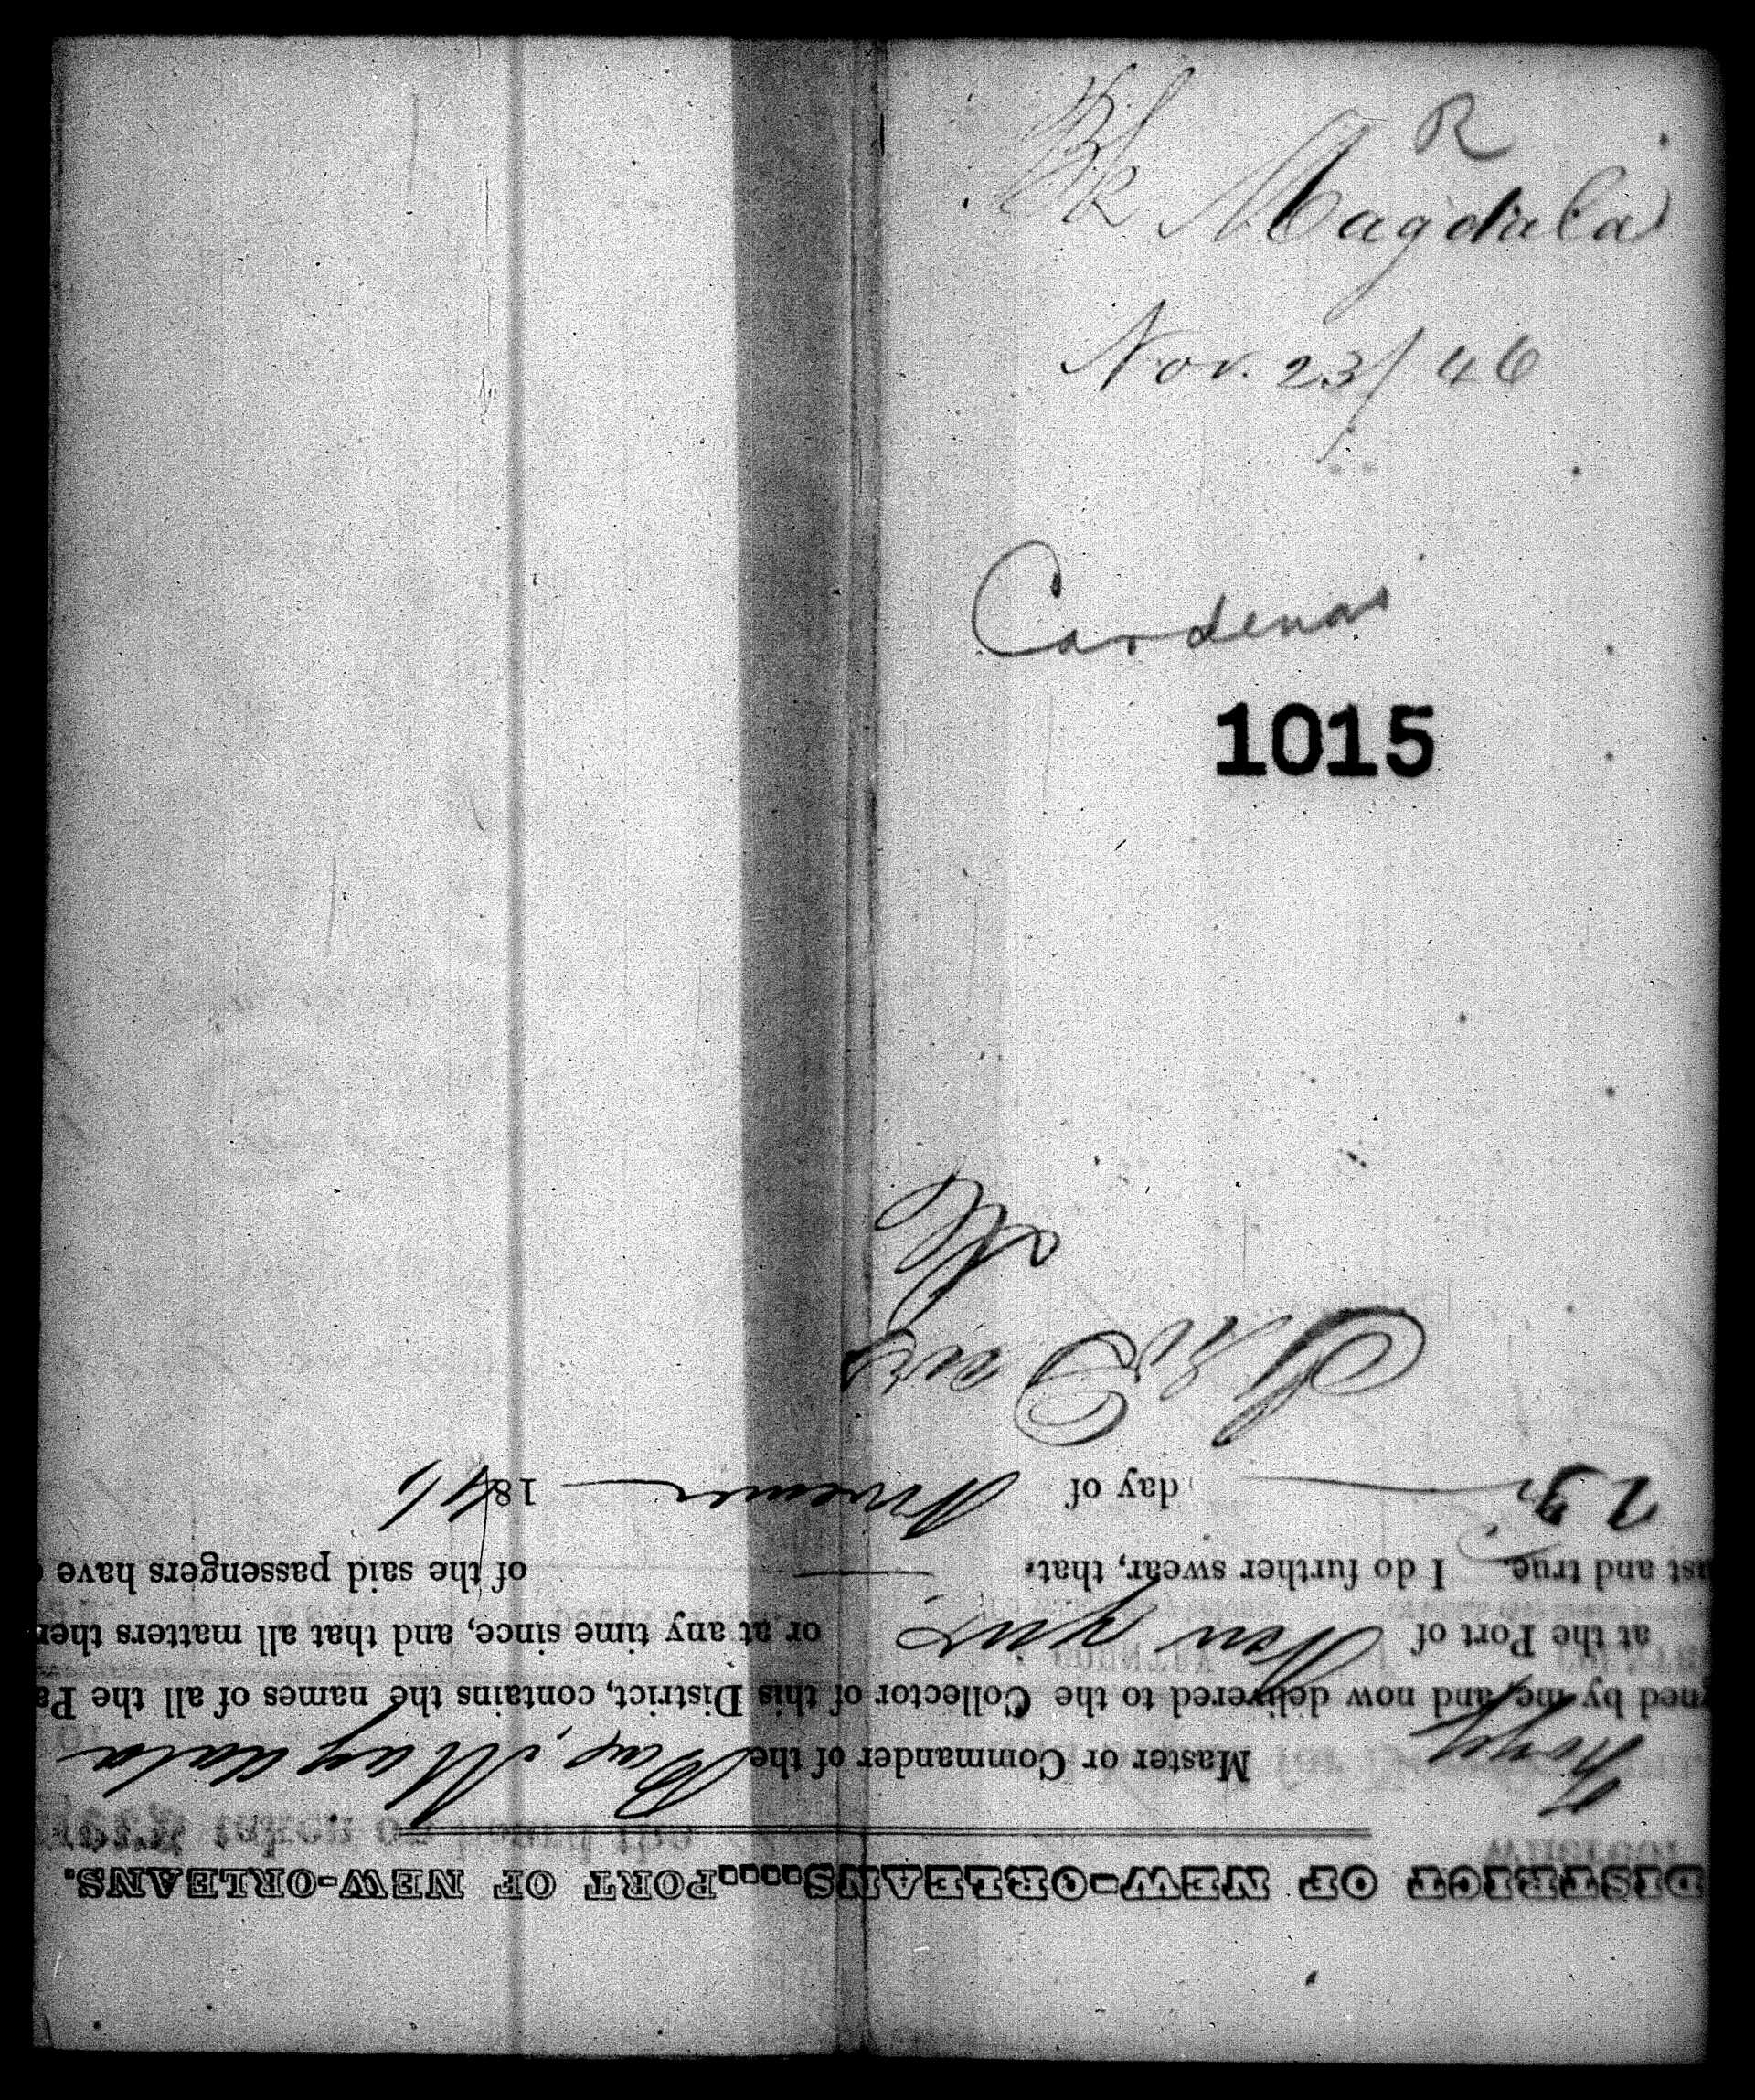 R
Bk Magdala
Nov. 23/46
Cardenas
1015
DISTRICT OF NEW-ORLEANS....PORT OF NEW-ORLEANS.
Master or Commander of the Barq. Magdala
ned by me, and now delivered to the Collector of this District, contains the names of all the Pa
at the Port of or at any time since, and that all matters ther
ust and true. I do further swear, that of the said passengers have
23 day of 1846